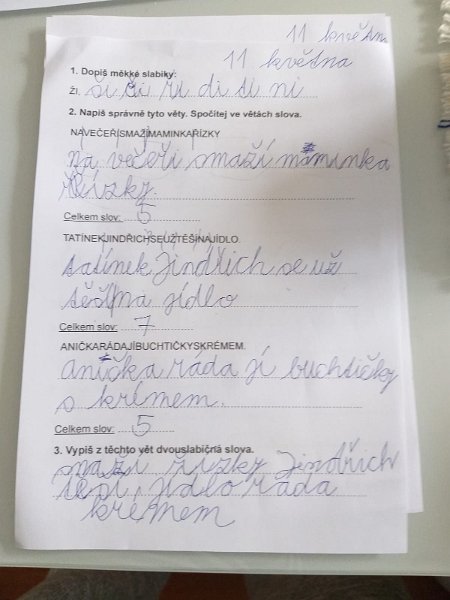 11 květn
11 května
1. Dopiš měkké slabiky:
ŽI, ši či ři di ti ni
2. Napiš správně tyto věty. Spočítej ve větách slova.
NAVEČEŘISMAŽÍMAMINKAŘÍZKY
na večeři smaží maminka
řízky.
Celkem slov: 5
TATÍNEKJINDŘICHSEUŽTĚŠÍNAJÍDLO.
tatínek Jindřich se už
těší na jídlo
Celkem slov: 7
ANIČKARÁDAJÍBUCHTIČKYSKRÉMEM.
anička ráda jí buchtičky
s krémem.
Celkem slov: 5
3. Vypiš z těchto vět dvouslabičná slova.
smaží řízky Jindřich
těší jídlo ráda
krémem